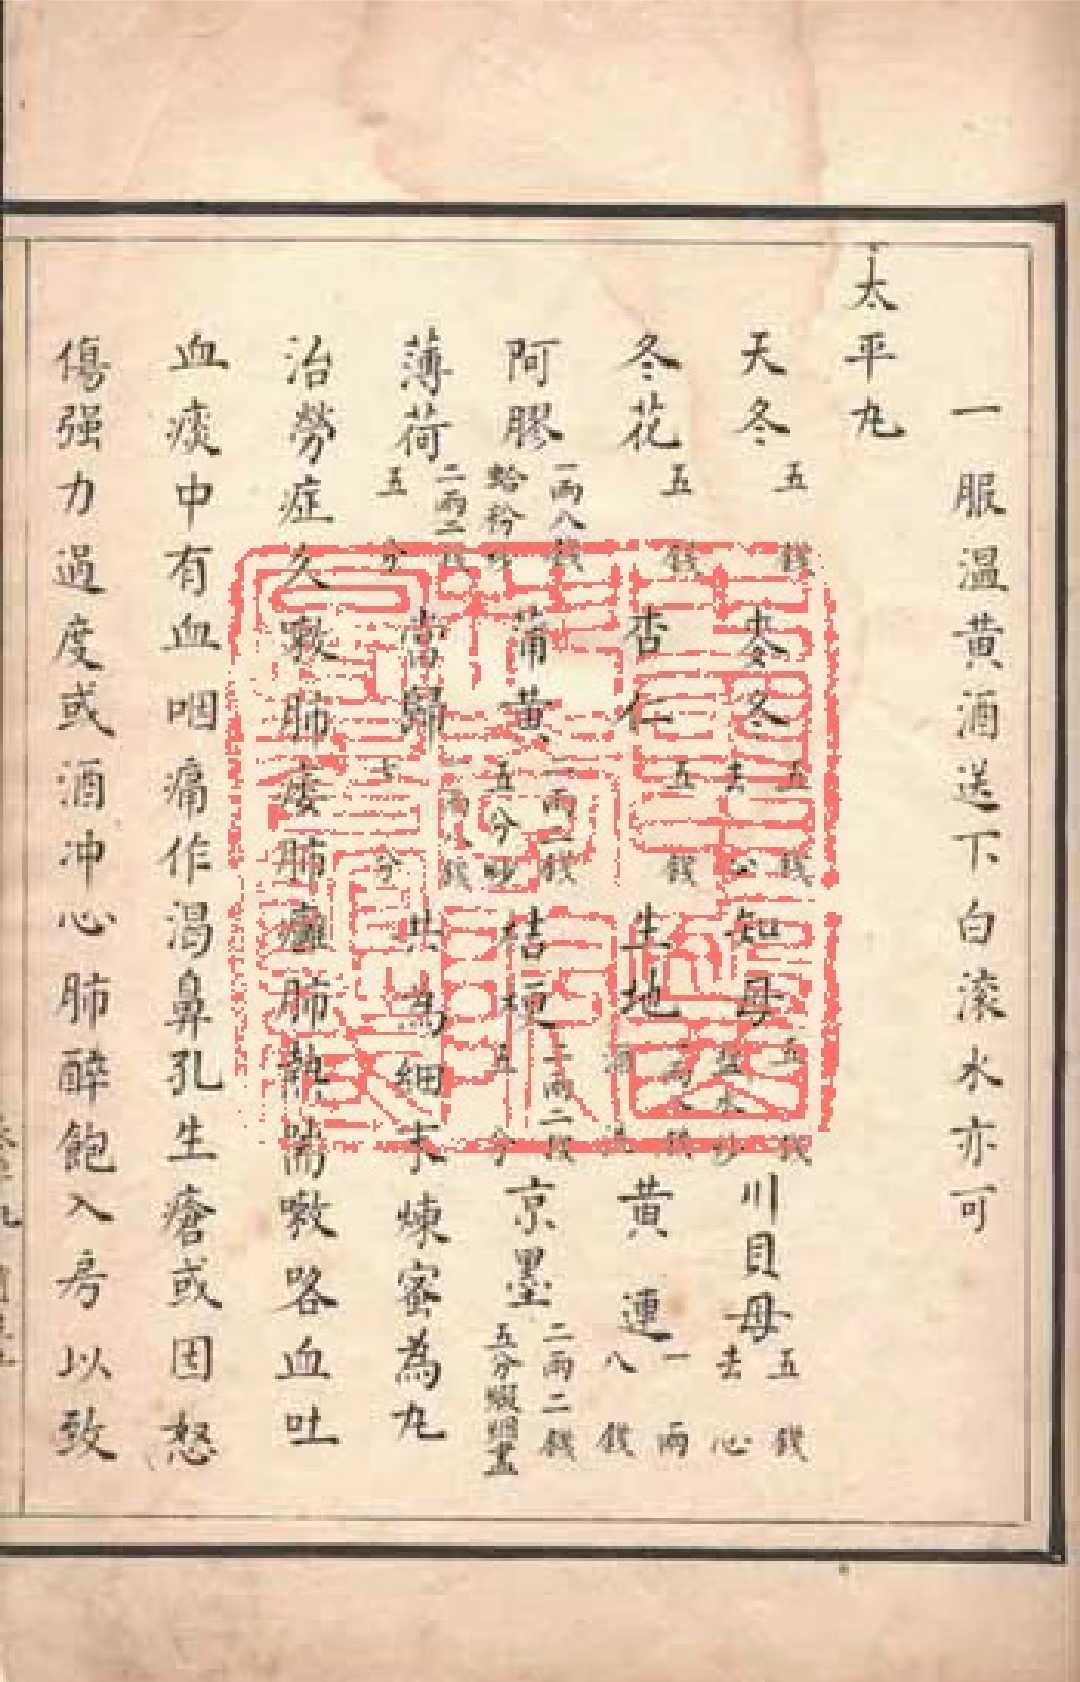 一服温黄酒送下白滚水亦可
太平丸
天冬五錢 麥冬五錢去心 知母五錢盐水炒 川貝母五錢去心
冬花五錢 杏仁五錢 生地 黄連一兩八錢
阿膠一兩八錢蛤粉炒 蒲黄二兩二錢五分炒 桔梗二兩二錢五分 京墨二兩二錢五分煅烟盡
薄荷二兩二錢五分 當歸一兩八錢七分 共為細末煉蜜為丸
治勞症久嗽肺痿肺癰肺熱喘嗽咯血吐
血痰中有血咽痛作渴鼻孔生瘡或因怒
傷强力過度或酒冲心肺醉飽入房以致